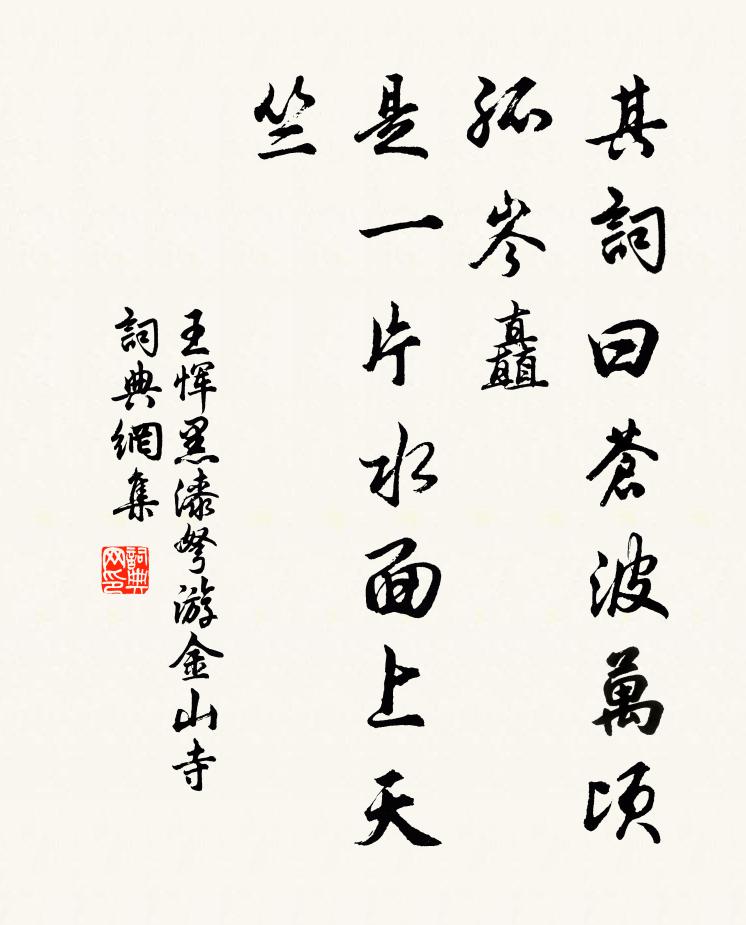 其詞曰蒼波萬頃
孤岑矗
是一片水面上天
竺
王惲黑漆弩游金山寺
詞典網集
詞典
网印